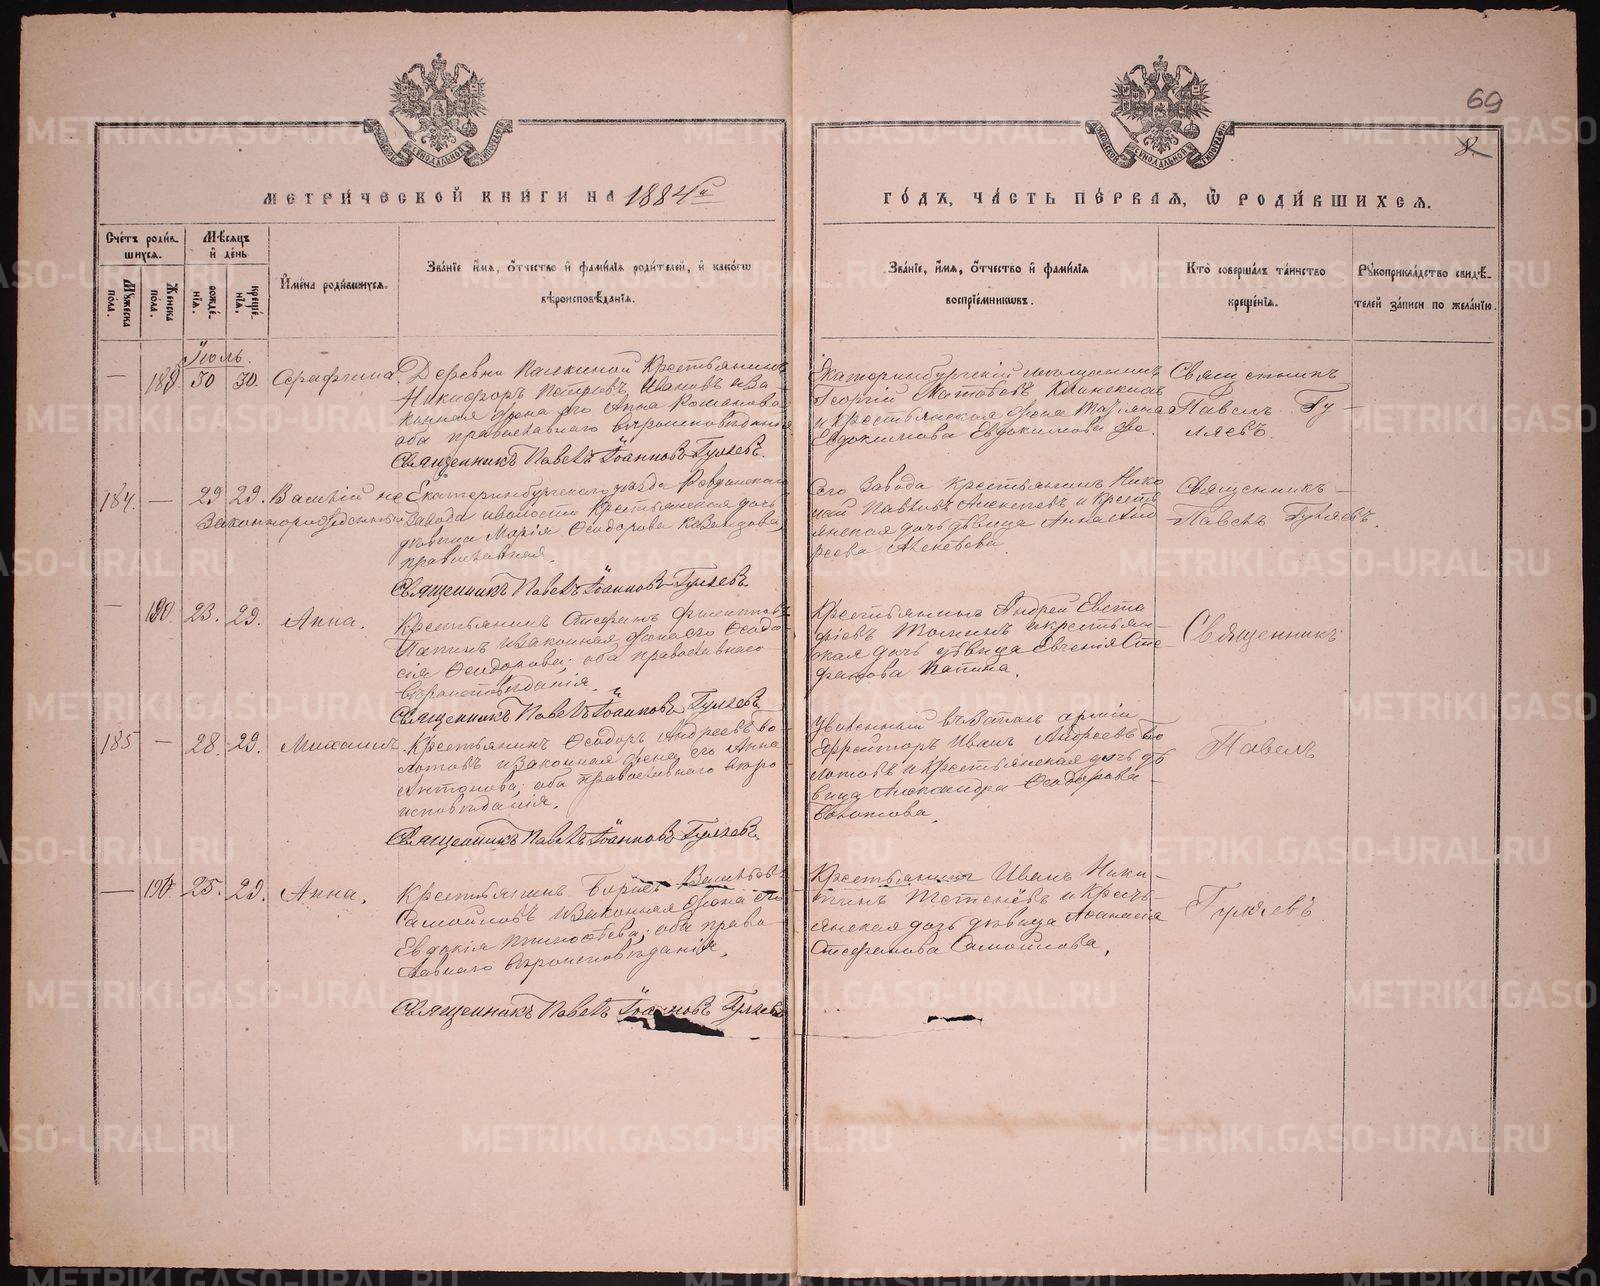 69
8.
МЕТРИЧЕСКОЙ КНИГИ НА 1884й
ГОДЪ, ЧАСТЬ ПЕРВАЯ, Ѿ РОДИВШИХСЯ.
Счетъ родившихся.
Мѣсяцъ и день
Мужеска пола.
Женска пола.
рожденія.
крещенія.
Имена родившихся.
Званіе имя, отчество и фамилія родителей, и какого
вѣроисповѣданія.
Званіе, имя, отчество и фамилія
воспріемниковъ.
Кто совершалъ таинство
крещенія.
Рукоприкладство свидѣ-
телей записи по желанію.
Іюль.
— 30 30. Серафима.
Деревни Палкиной Крестьянинъ
Никифоръ Петровъ Ивановъ и за-
конная жена его Анна Романова
оба православнаго вѣроисповѣданія
Священникъ Павелъ Іоанновъ Гуляевъ.
Екатеринбургскій мѣщанинъ
Георгій
и Крестьянская жена Татіана
Евдокимова Евдокимова же.
Священникъ
Павелъ Гу-
ляевъ.
184. — 29 29. Василій не
законнорожденный
Екатеринбургскаго уѣзда Ревдинскаго
завода и волости Крестьянская дочь
дѣвица Марія Ѳеодорова
православная.
Священникъ Павелъ Іоанновъ Гуляевъ.
Сего завода Крестьянинъ Нико
лай Павловъ и Кресть
янская дочь дѣвица Анна Анд
реева
Священникъ —
Павелъ Гуляевъ.
— 190. 23. 29. Анна.
Крестьянинъ Стефанъ Филиппов
Папинъ и законная жена его Ѳеодо
сія Ѳеодорова; оба православнаго
вѣроисповѣданія.
Священникъ Павелъ Іоанновъ Гуляевъ.
Крестьянинъ Андрей Евста
фіевъ и крестьян-
ская дочь дѣвица Евгенія Сте
фанова Папина.
Священникъ
185 — 28. 29. Михаилъ.
Крестьянинъ Ѳеодоръ Андреевъ Бо
лотовъ и законная жена его Анна
Антонова; оба православнаго вѣро
исповѣданія.
Священникъ Павелъ Іоанновъ Гуляевъ.
Уволенный въ запасъ арміи
Ефрейторъ Иванъ Андреевъ Бо
лотовъ и Крестьянская дочь дѣ
вица Александра Ѳеодорова
Болотова.
Павелъ
— 25. 29. Анна.
Крестьянинъ Борисъ Васильев
Самойловъ и законная жена его
Евдокія Тимоѳеева; оба право
славнаго вѣроисповѣданія.
Священникъ Павелъ Іоанновъ Гуляевъ
Крестьянинъ Иванъ Ники-
тинъ и Кресть-
янская дочь дѣвица Аѳанасія
Стефанова Самойлова.
Гуляевъ
METRIKI.GASO-URAL.RU